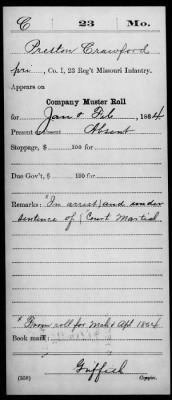 C 23 Mo.
Preston Crawford
Pvt., Co. I, 23 Reg't Missouri Infantry.
Appears on
Company Muster Roll
for Jan & Feb, 1864
Present Absent Absent
Stoppage, $ 100 for
Due Gov't, $ 100 for
Remarks: *In arrest and under
sentence of Court Martial.
* From roll for Mch & Apl 1864
Book mark:
Griffith
(358) Copyist.